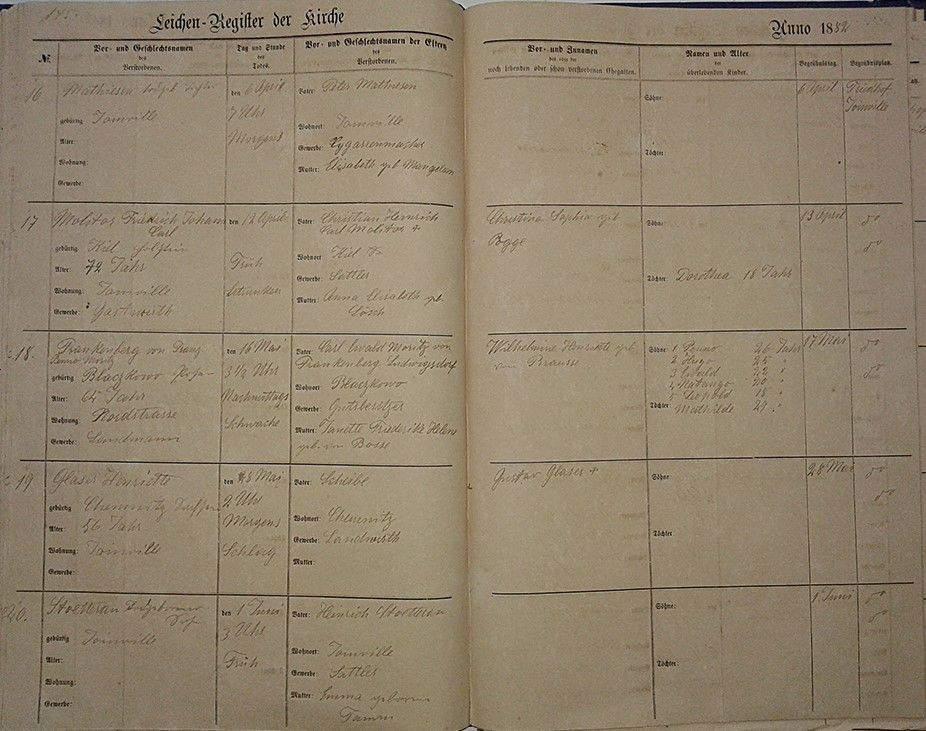 145.
Leichen-Register der Kirche
№
Vor- und Geschlechtsnamen
des
Verstorbenen.
Tag und Stunde
des
Todes.
Vor- und Geschlechtsnamen der Eltern
des
Verstorbenen.
16
Mathiesen
gebürtig Joinville
Alter:
Wohnung:
Gewerbe:
den 6 April
7 Uhr
Morgens
Vater: Peter Mathiesen
Wohnort: Joinville
Gewerbe: Cygarrenmacher
Mutter: Elisabeth geb Mangelsen
17
Molitor Friedrich Johann
Carl
gebürtig Kiel Holstein
Alter: 72 Jahr
Wohnung: Joinville
Gewerbe: Gastwirth
den 12 April
Früh
Vater: Christian Heinrich
Carl Molitor +
Wohnort Kiel
Gewerbe: Sattler
Mutter: Anna Elisabeth geb
Lösch
18.
Frankenberg von Franz
Benno Moritz
gebürtig Blaczkowo
Alter: 65 Jahr
Wohnung: Nordstrasse
Gewerbe: Landmann
den 16 Mai
3½ Uhr
Nachmittags
Schwäche
Vater: Carl Ewald Moritz von
Frankenberg Ludwigsdorf
Wohnort: Blaczkowo
Gewerbe: Gutsbesitzer
Mutter: Janette Friederike Helene
geb. von Bosse
19
Glaser Henriette
gebürtig Chemnitz
Alter: 56 Jahr
Wohnung: Joinville
Gewerbe:
den 28 Mai
2 Uhr
Morgens
Schlag
Vater: Scheibe
Wohnort: Chemnitz
Gewerbe: Landwirth
Mutter:
20.
gebürtig Joinville
Alter:
Wohnung:
Gewerbe:
den 1 Juni
3 Uhr
Früh
Vater: Heinrich
Wohnort: Joinville
Gewerbe: Sattler
Mutter: Emma geborne
Tamm
Anno 1882
Vor- und Zunamen
des oder der
noch lebenden oder schon verstorbenen Ehegatten.
Namen und Alter
der
überlebenden Kinder.
Begräbnißtag.
Begräbnißplatz.
Söhne:
Töchter:
6 April
Friedhof
Joinville
Christina Sophia geb
Bogge
Söhne:
Töchter: Dorothea 18 Jahr
13 April
do
do
Wilhelmine Henriette geb
von Brause
Söhne 1 Benno 26 Jahr
2 Hugo 25 "
3 Ewald 22 "
4 20 "
5 Leopold 18 "
Töchter: Mathilde 29 "
17 Mai
do
do
Gustav Glaser +
Söhne:
Töchter:
28 Mai
do
do
Söhne:
Töchter:
1 Juni
do
do